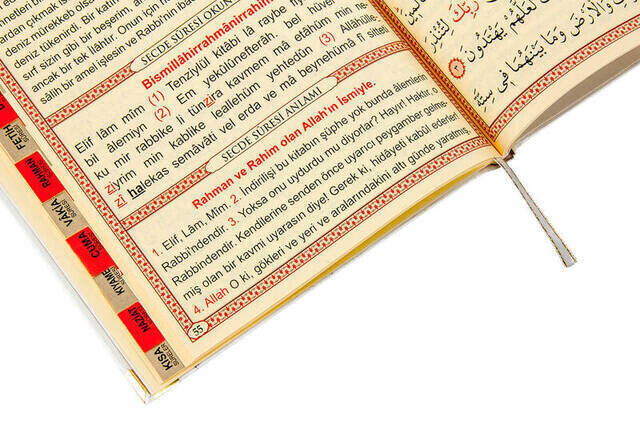 deniz mürekkep olsa,
sırf sizin gibi bir beşerim, an
ancak bir tek ilâhtır. Onun için
sâlih bir amel işlesin ve Rabbi'nin ibad
SECDE SÛRESİ OKUN
Bismillâhirrahmânirrahîm
Elif lâm mîm (1) Tenzîylül kitâbi lâ raybe
bil âlemiyn (2) Em yekûlûnefterâh. bel hü
ku mir rabbike li tünzira kavmem mâ etâhüm min ne
ziyrim min kablike leallehüm yehtedûn (3) Allâhülle-
zî halekas semâvâti vel erda ve mâ beynehümâ fî sitteti
SECDE SÛRESİ ANLAMI
Rahman ve Rahim olan Allah'ın İsmiyle.
1. Elif, Lâm, Mîm. 2. İndirilişi bu kitabın şüphe yok bunda âlemlerin
Rabbi'ndendir. 3. Yoksa onu uydurdu mu diyorlar? Hayır! Haktır, o
Rabbindendir. Kendilerine senden önce uyarıcı peygamber gelme-
miş olan bir kavmi uyarasın diye! Gerek ki, hidâyeti kabûl ederler!
4. Allah O ki, gökleri ve yeri ve aralarındakini altı günde yaratmış,
55
FETİH
RAHMAN
VAKIA
CUMA
KIYAME
NAZİAT
KISA
SURELER
رَبِّكَ لِتُنْذِرَ
لَعَلَّهُمْ يَهْتَدُونَ
وَالْاَرْضَ وَمَا بَيْنَهُمَا فِى سِتَّةِ